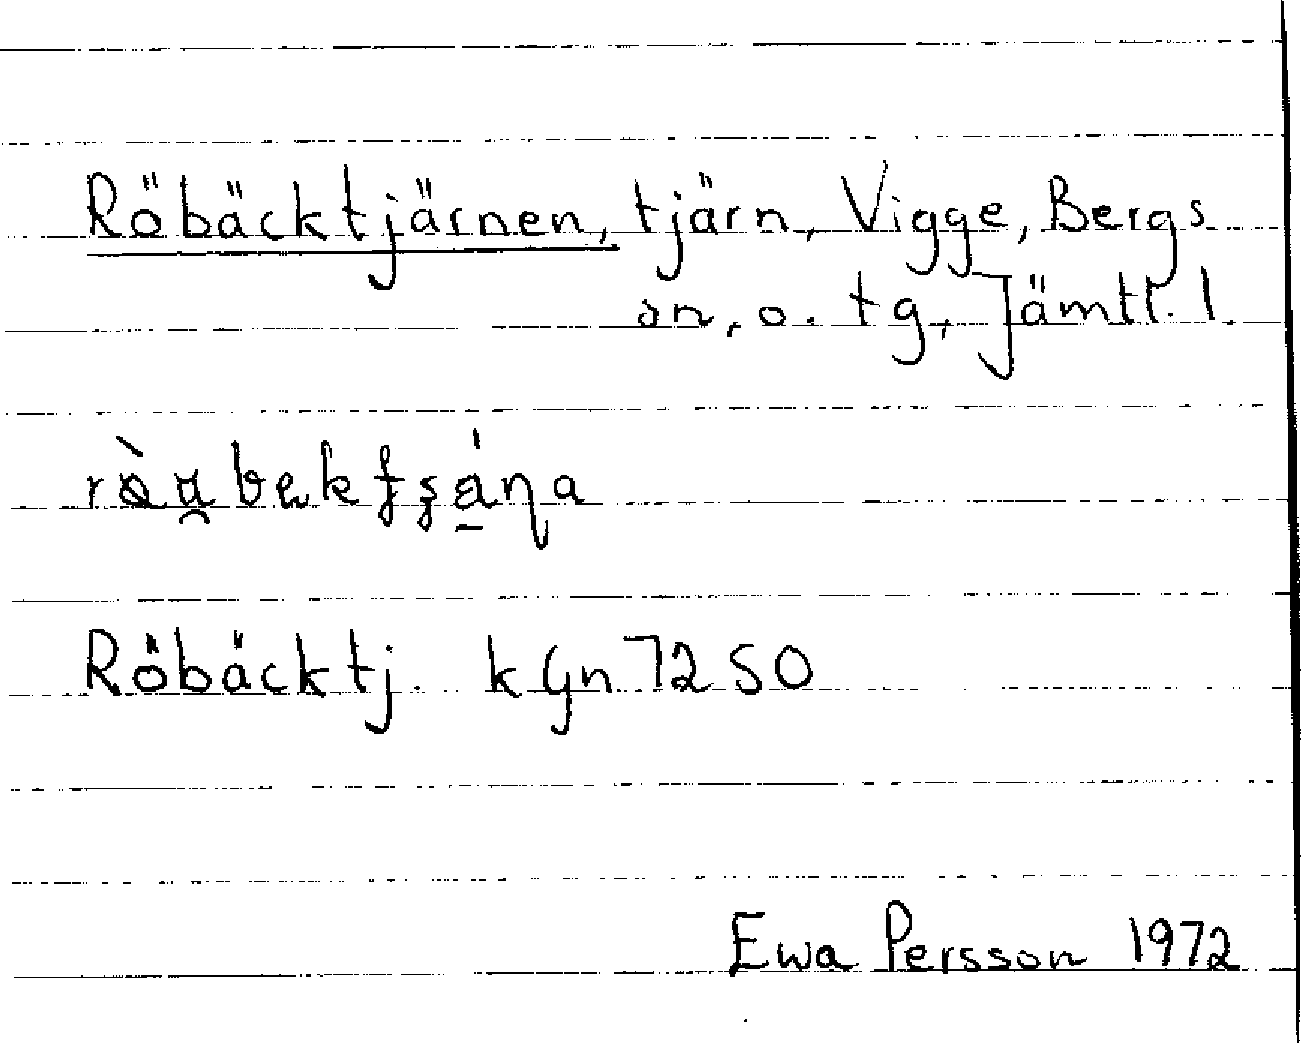 Röbäcktjärnen, tjärn, Vigge, Bergs
sn, o. tg, Jämtl. l.
Röbäcktj. kGn 7250
Ewa Persson 1972